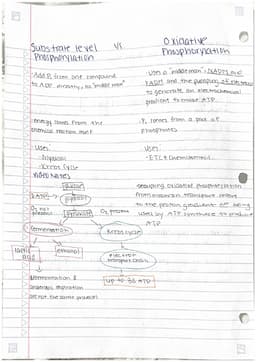 Substrate level vs. Oxidative
Phosphorylation Phosphorylation
·Add Pi from one compound
to ADP directly, no "middle man"
·Uses a "middle man" (NADH and
FADH) and the pumping of electrons
to generate an electrochemical
gradient to make ATP
·energy comes from the
chemical reaction itself
·Pi comes from a pool of
phosphates
·Uses:
-Glycolysis
-Kreb Cycle
Uses:
-ETC & Chemiosmosis
Video Notes
Glucose
2 ATP
pyruvate
O2 not
present
O2 present
Fermentation
Krebs cycle
lactic
acid
ethanol
electron
transport chain
up to 36 ATP
Fermentation &
anaerobic respiration
are not the same process!
oxidative phosphorylation
from electron transport
to the proton gradient being
used by ATP synthase to produce
ATP